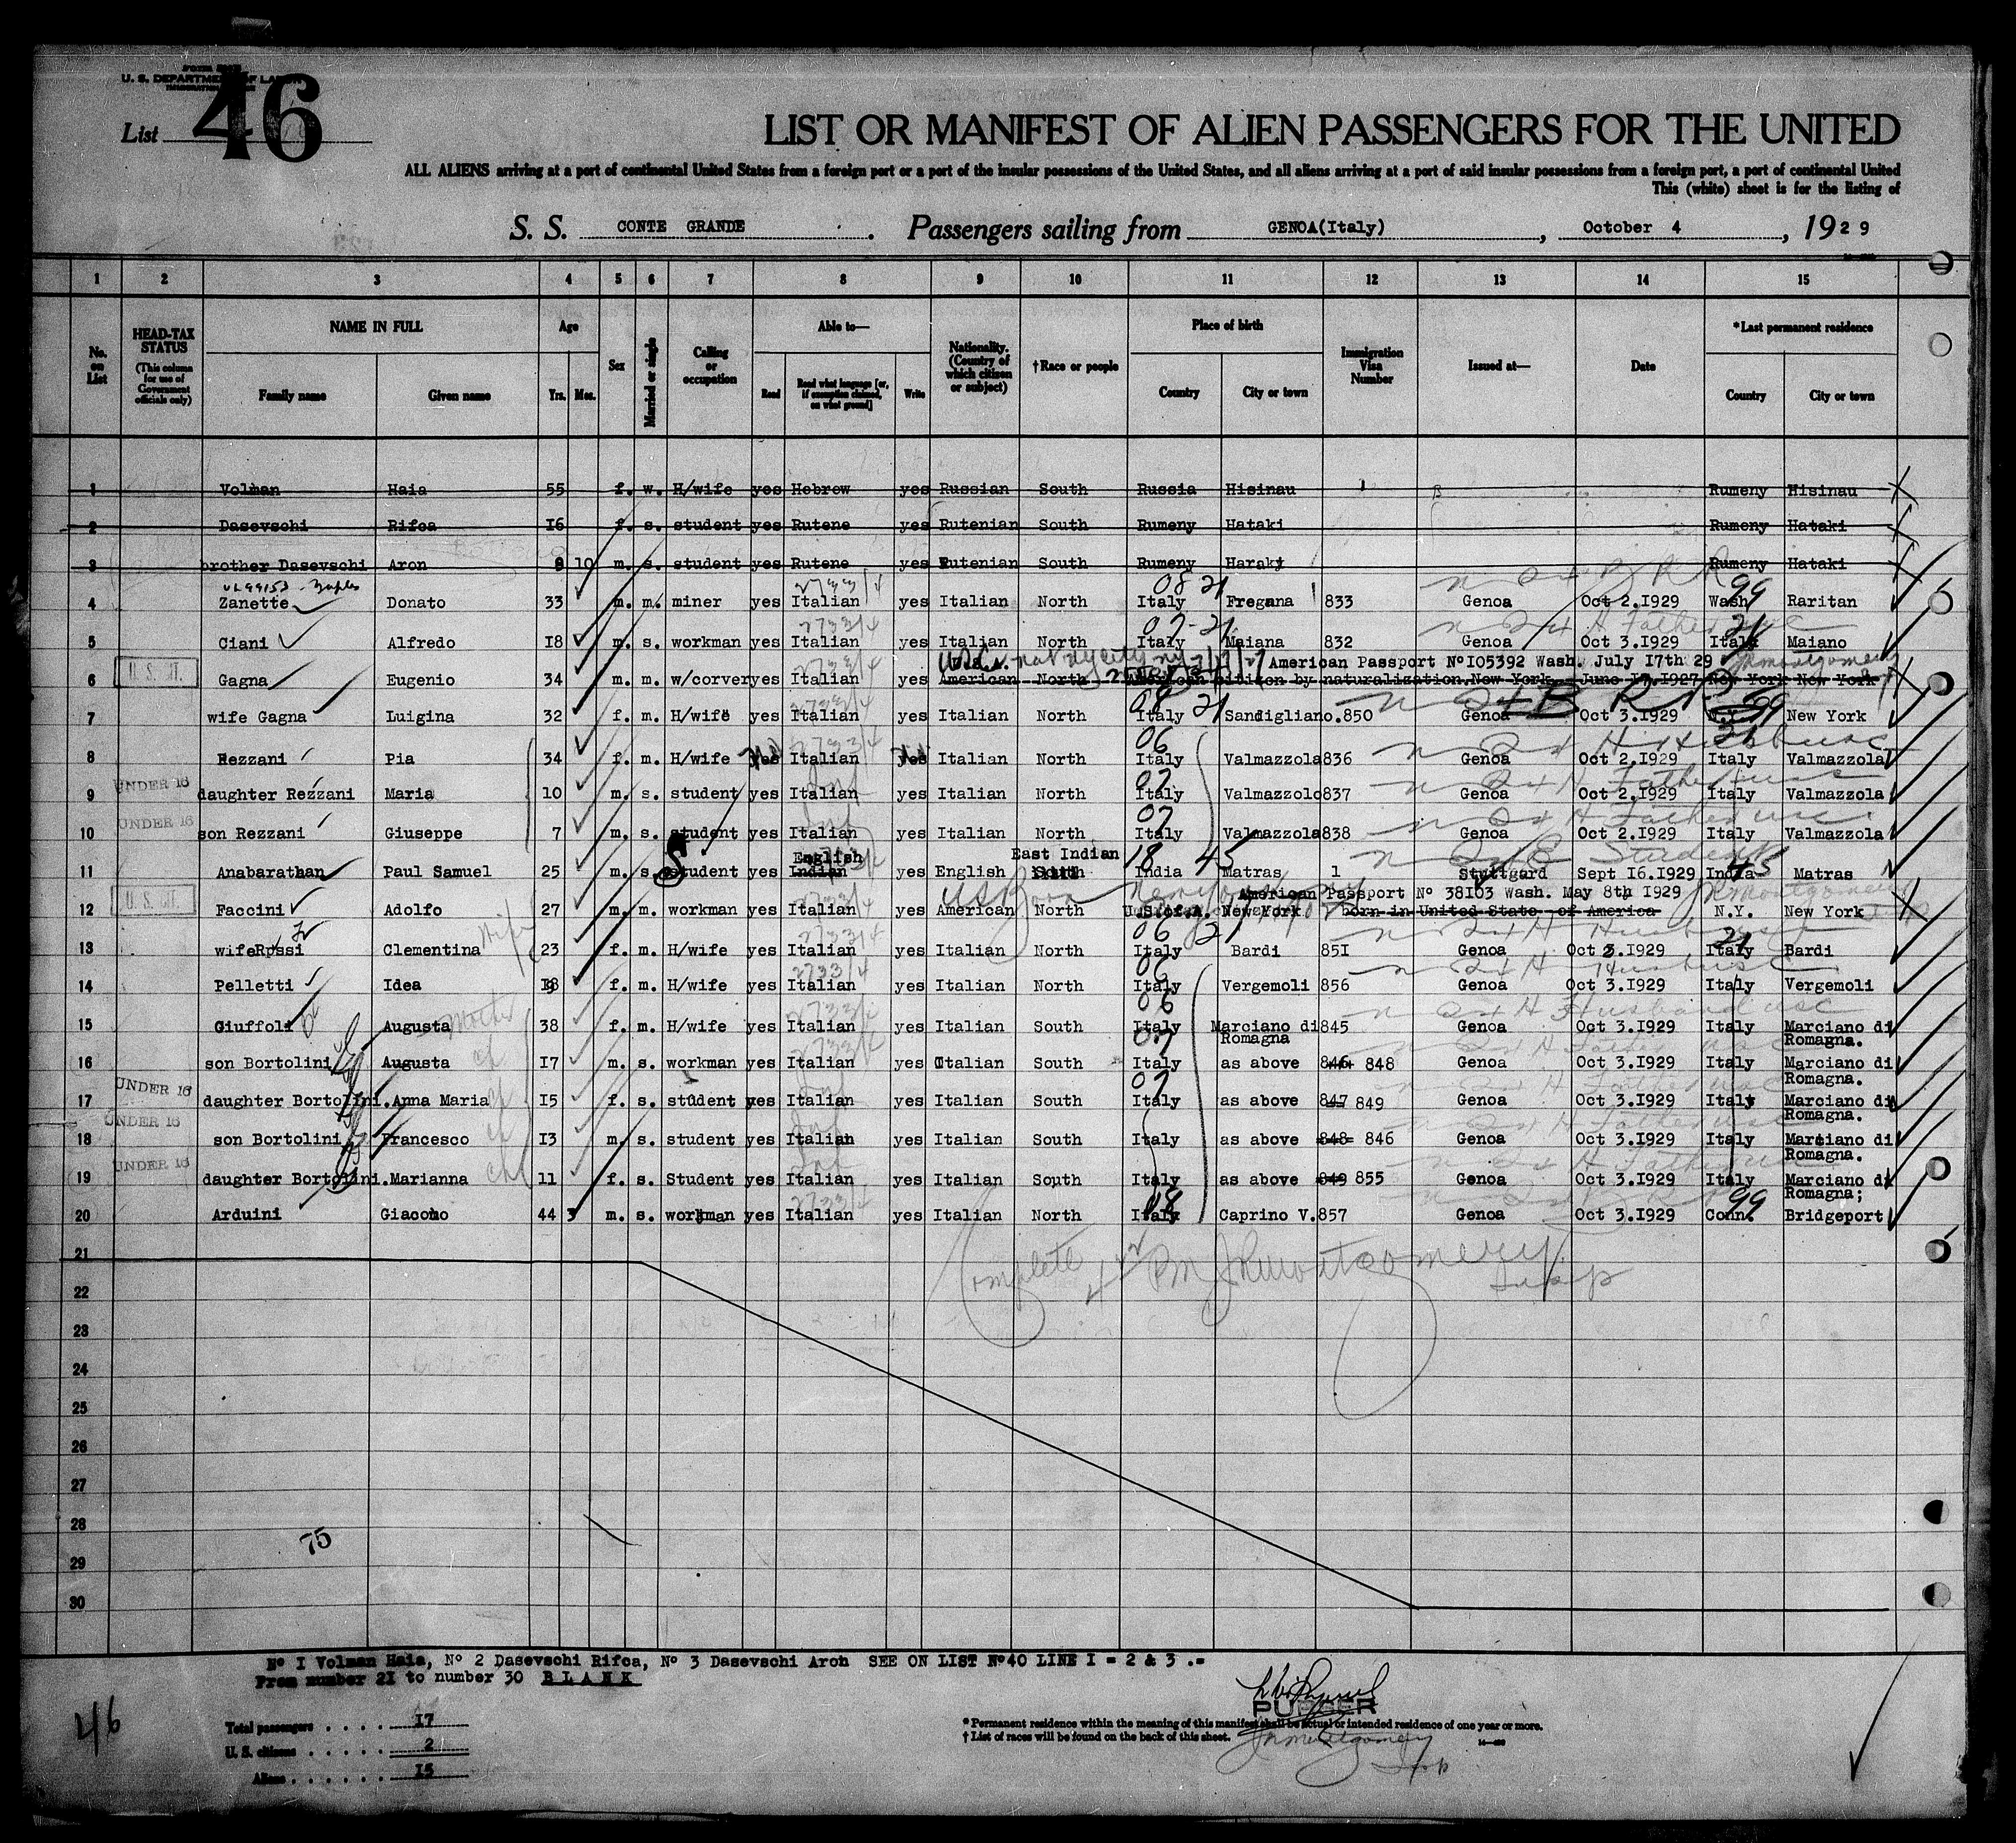 U. S. DEPARTMENT OF LABOR
List 46
LIST OR MANIFEST OF ALIEN PASSENGERS FOR THE UNITED
ALL ALIENS arriving at a port of continental United States from a foreign port or a port of the insular possessions of the United States, and all aliens arriving at a port of said insular possessions from a foreign port, a port of continental United
This (white) sheet is for the listing of
S. S. CONTE GRANDE. Passengers sailing from GENOA(Italy), October 4, 1929
1 2 3 4 5 6 7 8 9 10 11 12 13 14 15
No. on List
HEAD-TAX STATUS (This column for use of Government officials only)
NAME IN FULL Family name Given name
Age Yrs. Mos.
Sex
Married or single
Calling or occupation
Able to— Read Read what language [or, if exemption claimed, on what ground] Write
Nationality. (Country of which citizen or subject)
†Race or people
Place of birth Country City or town
Immigration Visa Number
Issued at—
Date
*Last permanent residence Country City or town
1 Volman Haia 55 f. w. H/wife yes Hebrew yes Russian South Russia Hisinau Rumeny Hisinau
2 Dasevschi Rifca I6 f. s. student yes Rutene yes Rutenian South Rumeny Hataki Rumeny Hataki
3 brother Dasevschi Aron 8 10 m. s. student yes Rutene yes Rutenian South Rumeny Haraki Rumeny Hataki
4 Zanette Donato 33 m. m. miner yes Italian yes Italian North Italy Fregana 833 Genoa Oct 2.I929 Wash. Raritan
5 Ciani Alfredo I8 m. s. workman yes Italian yes Italian North Italy Maiana 832 Genoa Oct 3.I929 Italy Maiano
American Passport NºI05392 Wash. July I7th 29
6 Gagna Eugenio 34 m. m. w/corver yes Italian yes American North American citizen by naturalization New York June I7.I927 New York New York
7 wife Gagna Luigina 32 f. m. H/wife yes Italian yes Italian North Italy Sandigliano. 850 Genoa Oct 3.I929 N.Y. New York
8 Rezzani Pia 34 f. m. H/wife yes Italian yes Italian North Italy Valmazzola 836 Genoa Oct 2.I929 Italy Valmazzola
UNDER 16
9 daughter Rezzani Maria 10 m. s. student yes Italian yes Italian North Italy Valmazzolo 837 Genoa Oct 2.I929 Italy Valmazzola
UNDER 16
10 son Rezzani Giuseppe 7 m. s. student yes Italian yes Italian North Italy Valmazzola 838 Genoa Oct 2.I929 Italy Valmazzola
English East Indian
11 Anabarathan Paul Samuel 25 m. s. student yes Indian yes English South India Matras 1 Stuttgard Sept I6.I929 India Matras
American Passport Nº 38I03 Wash. May 8th I929
12 Faccini Adolfo 27 m. m. workman yes Italian yes American North U.S.of.A. New York born in United State of America N.Y. New York
13 wife Rossi Clementina 23 f. m. H/wife yes Italian yes Italian North Italy Bardi 85I Genoa Oct 3.I929 Italy Bardi
14 Pelletti Idea I8 f. m. H/wife yes Italian yes Italian North Italy Vergemoli 856 Genoa Oct 3.I929 Italy Vergemoli
15 Giuffoli Augusta 38 f. m. H/wife yes Italian yes Italian South Italy Marciano di Romagna 845 Genoa Oct 3.I929 Italy Marciano di Romagna.
16 son Bortolini Augusta I7 m. s. workman yes Italian yes Italian South Italy as above 846 848 Genoa Oct 3.I929 Italy Marciano di Romagna.
UNDER 16
17 daughter Bortolini. Anna Maria I5 f. s. student yes Italian yes Italian South Italy as above 847 849 Genoa Oct 3.I929 Italy Marciano di Romagna.
UNDER 16
18 son Bortolini Francesco I3 m. s. student yes Italian yes Italian South Italy as above 848 846 Genoa Oct 3.I929 Italy Marciano di Romagna.
UNDER 16
19 daughter Bortolini. Marianna 11 f. s. Student yes Italian yes Italian South Italy as above 849 855 Genoa Oct 3.I929 Italy Marciano di Romagna;
20 Arduini Giacomo 44 3 m. s. workman yes Italian yes Italian North Italy Caprino V. 857 Genoa Oct 3.I929 Conn. Bridgeport
21
Complete
22
23
24
25
26
27
28
75
29
30
Nº I Volman Haia, Nº 2 Dasevschi Rifca, Nº 3 Dasevschi Aron SEE ON LIST Nº40 LINE I = 2 & 3 .=
From number 2I to number 30 BLANK
46
Total passengers . . . . I7
U. S. citizens . . . . . 2
Aliens . . . . . . I5
PURSER
* Permanent residence within the meaning of this manifest shall be actual or intended residence of one year or more.
† List of races will be found on the back of this sheet.